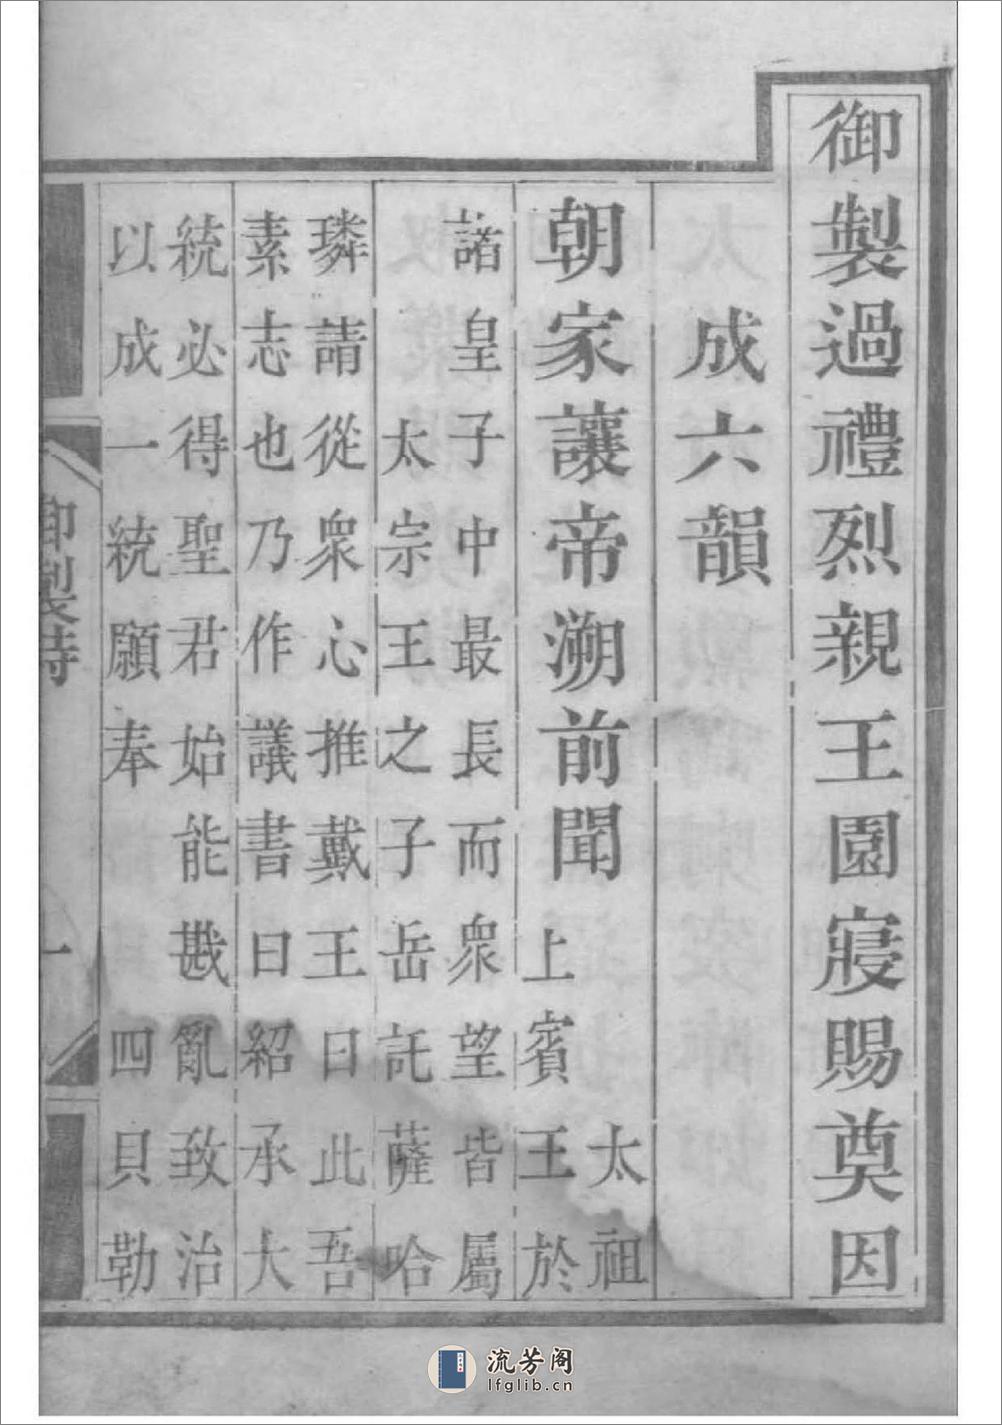 御製過禮烈親王園寢賜奠因
成六韻
朝家讓帝溯前聞
太祖
上賓王於
諸皇子中最長而衆望皆屬
太宗王之子岳託薩哈
璘請從衆心推戴王曰此吾
素志也乃作議書曰紹承大
統必得聖君始能戡亂致治
以成一統願奉四貝勒
御製詩
一
流芳阁
lfglib.cn